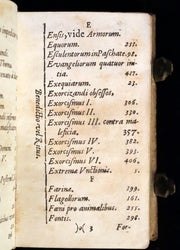 E
Ensis, vide Armorum.
Equorum. 231.
Esculentorum in Paschate. 92.
Evangeliorum quatuor ini-
tia. 427.
Exequiarum. 23.
Exorcizandi obsessos,
Exorcismus I. 306.
Exorcismus II. 330.
Exorcismus III. contra ma-
leficia. 357.
Exorcismus IV. 382.
Exorcismus V. 393.
Exorcismus VI. 406.
Extrema Vnctionis.
F
Farinæ. 299.
Flagellorum. 261.
Fœni pro animalibus. 251.
Fontis. 298.
)o( 3 For-
Benedictio vel Ritus.